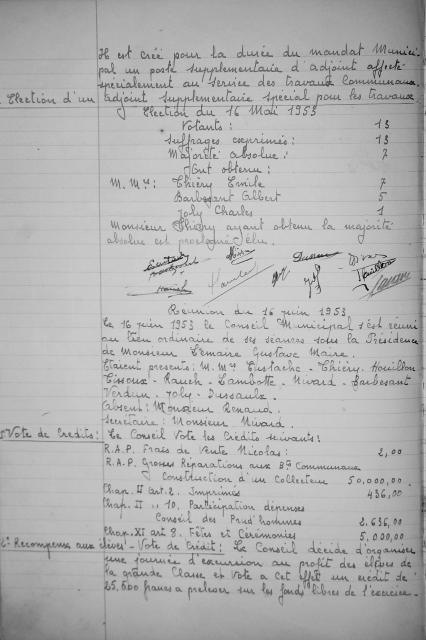 Il est créé pour la durée du mandat Munici-
pal un poste supplémentaire d'adjoint affecté
spécialement au service des travaux Communaux.
Election d'un adjoint supplémentaire spécial pour les travaux
Election du 16 Mai 1953
Votants : 13
Suffrages exprimés : 13
Majorité absolue : 7
Ont obtenu :
M. Mrs : Thiéry Emile 7
Barbesant Albert 5
Joly Charles 1
Monsieur Thiéry ayant obtenu la majorité
absolue est proclamé élu.
Rauch
Dussaulx
Nivard
Houillon
Réunion du 16 juin 1953
Le 16 juin 1953 le Conseil Municipal s'est réuni
au lieu ordinaire de ses séances sous la Présidence
de Monsieur Lemaire Gustave Maire.
Etaient présents : M. Mrs Eustache - Thiéry - Houillon
Cissoux - Rauch - Lambotte - Nivard - Barbesant
Verdun - Joly - Dussaulx.
Absent : Monsieur Renaud.
Secrétaire : Monsieur Nivard.
1° Vote de Crédits : Le Conseil Vote les Crédits suivants :
R.A.P. Frais de Vente Nicolas : 2,00
R.A.P. Grosses Réparations aux Bts Communaux
Construction d'un Collecteur 50,000,00
Chap. II art. 2. Imprimés 436,00
Chap. II " 10. Participation dépenses
Conseil des Prud'hommes 2.636,00
Chap. XI art 8. Fêtes et Cérémonies 5,000,00
2° Récompense aux élèves - Vote de Crédit : Le Conseil décide d'organiser
une journée d'excursion au profit des élèves de
la grande Classe et Vote à Cet effet un crédit de
25,600 francs à prélever sur les fonds libres de l'exercice.